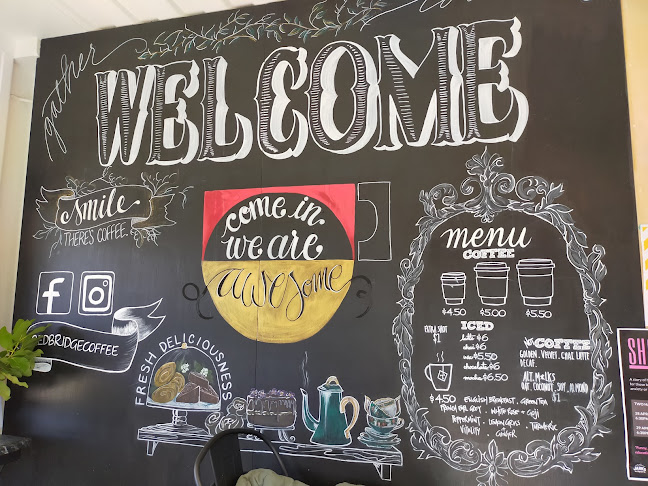 gather
WELCOME
Smile
THERE'S COFFEE.
come in
we are
awesome
f
EDBRIDGECOFFEE
FRESH DELICIOUSNESS
menu
COFFEE
$4.50 $5.00 $5.50
EXTRA SHOT
$1
ICED
latte $6
chai $6
$5.50
chocolate $6
mocha $6.50
COFFEE
GOLDEN, VELVET, CHAI LATTE
DECAF.
ALT. MELKS
OAT, COCONUT, SOY, ALMOND
$1
$4.50
ENGLISH BREAKFAST, GREEN TEA
FRENCH EARL GREY, WHITE ROSE - GOJI
PEPPERMINT, LEMON CITRUS, TURMERIC
VITALITY, GINGER
SH